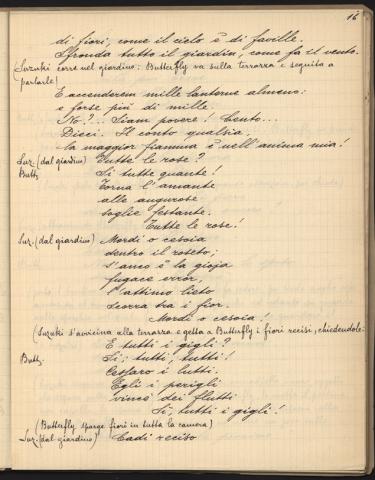 16
di fiori, come il cielo è di faville.
Sfronda tutto il giardin, come fa il vento.
(Suzuki corre nel giardino: Butterfly va sulla terrazza e seguita a
parlarle)
E accenderem mille lanterne almeno:
e forse più di mille.
No?... Siam povere! Cento...
Dieci. Il conto qualsia,
la maggior fiamma è nell'anima mia!
Suz. (dal giardino) Tutte le rose?
Butt. Sì tutte quante!
Torna l'amante
alle augurose
soglie festante.
Tutte le rose!
Suz. (dal giardino) Mordi o cesoia
dentro il roseto;
s'anco è la gioja
fugace error,
l'attimo lieto
scorra tra i fior.
Mordi o cesoia!
(Suzuki s'avvicina alla terrazza e getta a Butterfly i fiori recisi, chiedendole:
E tutti i gigli?
Butt. Sì, tutti, tutti!
Cessaro i lutti.
Egli i perigli
vinse dei flutti
Sì, tutti i gigli!
(Butterfly sparge fiori in tutta la camera)
Suz. (dal giardino) Cadi reciso